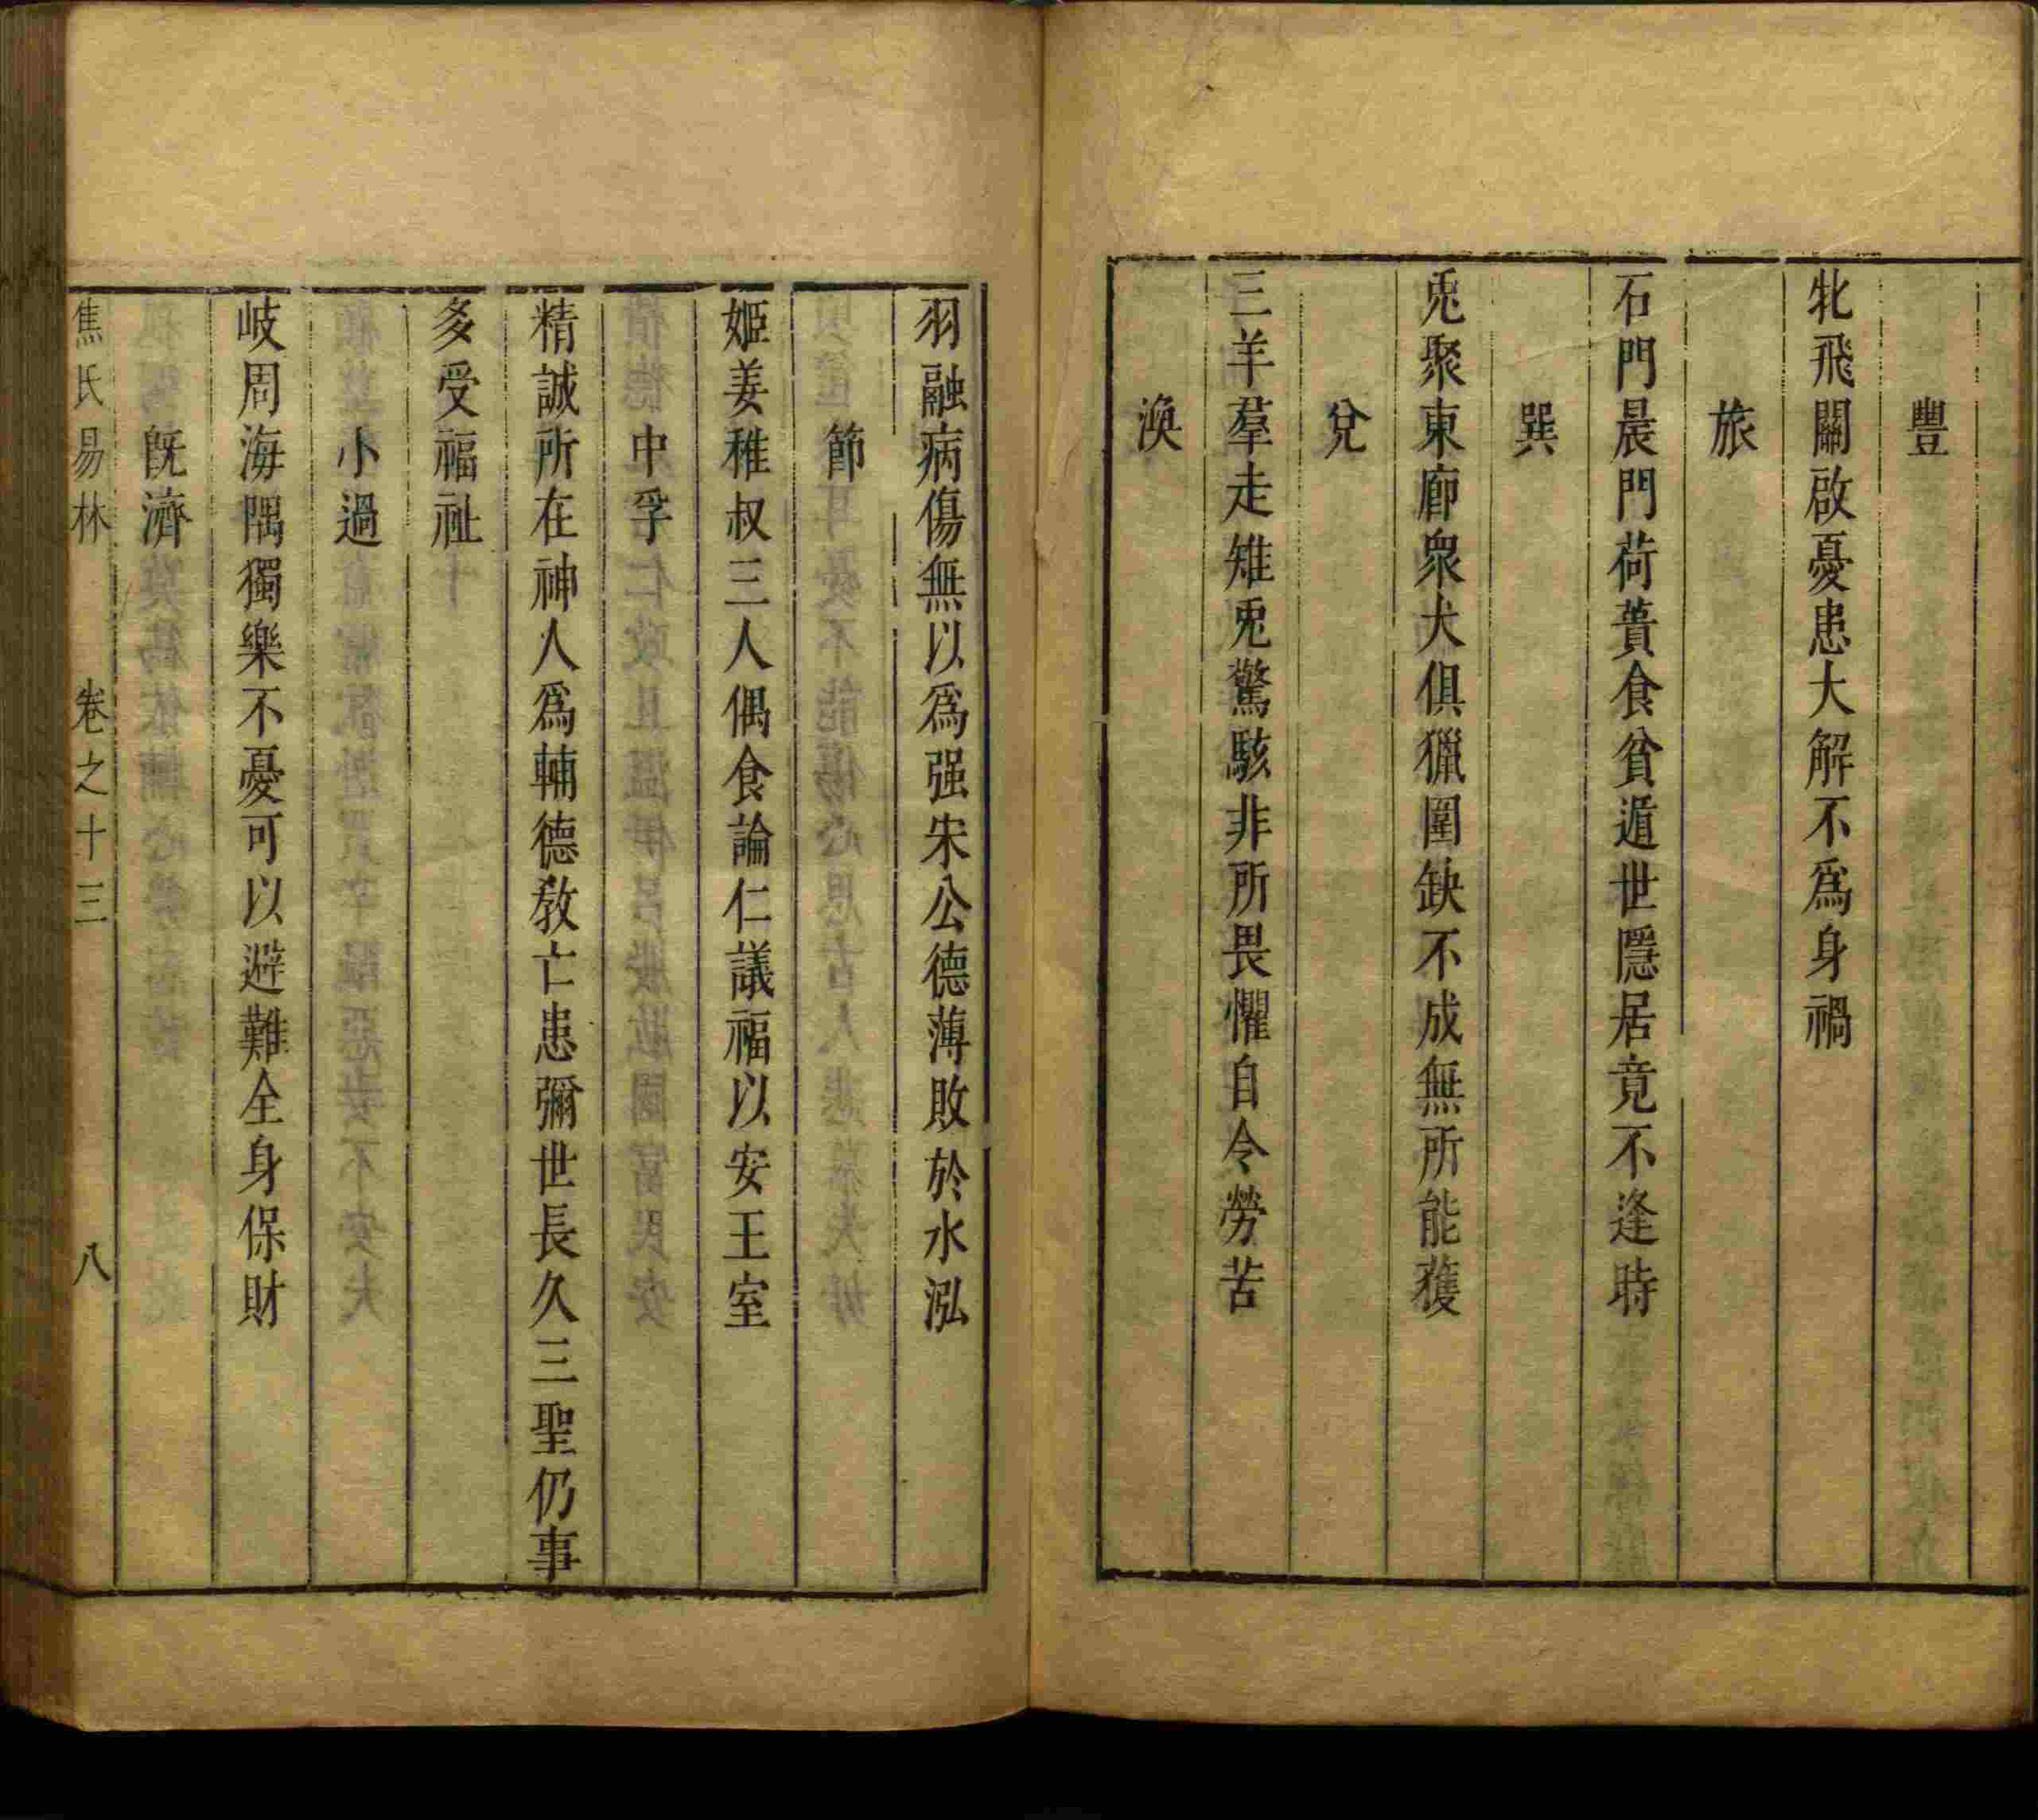 豐
牝飛關啟憂患大解不為身禍
旅
石門晨門荷蕢食貧遁世隱居竟不逢時
巽
兎聚東廊衆犬俱獵圍缺不成無所能獲
兌
三羊羣走雉兎驚駭非所畏懼自令勞苦
渙
羽融病傷無以爲强宋公德薄敗於水泓
節
姬姜稚叔三人偶食論仁議福以安王室
中孚
精誠所在神人爲輔德教亡患彌世長久三聖仍事
多受福祉
小過
岐周海隅獨樂不憂可以避難全身保財
既濟
焦氏易林 卷之十三 八